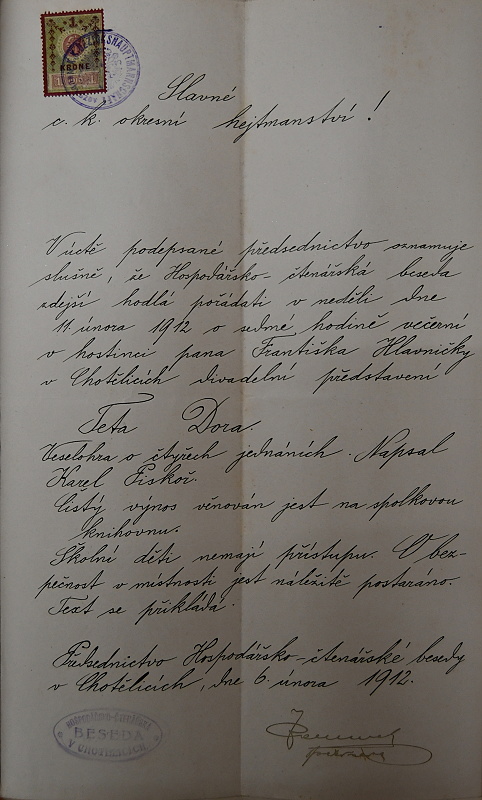 1
KRONE
Slavné
c. k. okresní hejtmanství!
V úctě podepsané předsednictvo oznamuje
slušně, že Hospodářsko-čtenářská beseda
zdejší hodlá pořádati v neděli dne
11. února 1912 o sedmé hodině večerní
v hostinci pana Františka Hlavničky
v Chotělicích divadelní představení
Teta Dora.
Veselohra o čtyřech jednáních. Napsal
Karel Piskoř.
Čistý výnos věnován jest na spolkovou
knihovnu.
Školní děti nemají přístupu. O bez-
pečnost v místnosti jest náležitě postaráno.
Text se přikládá.
Předsednictvo Hospodářsko-čtenářské besedy
v Chotělicích, dne 6. února 1912.
BESEDA
V CHOTĚLICÍCH